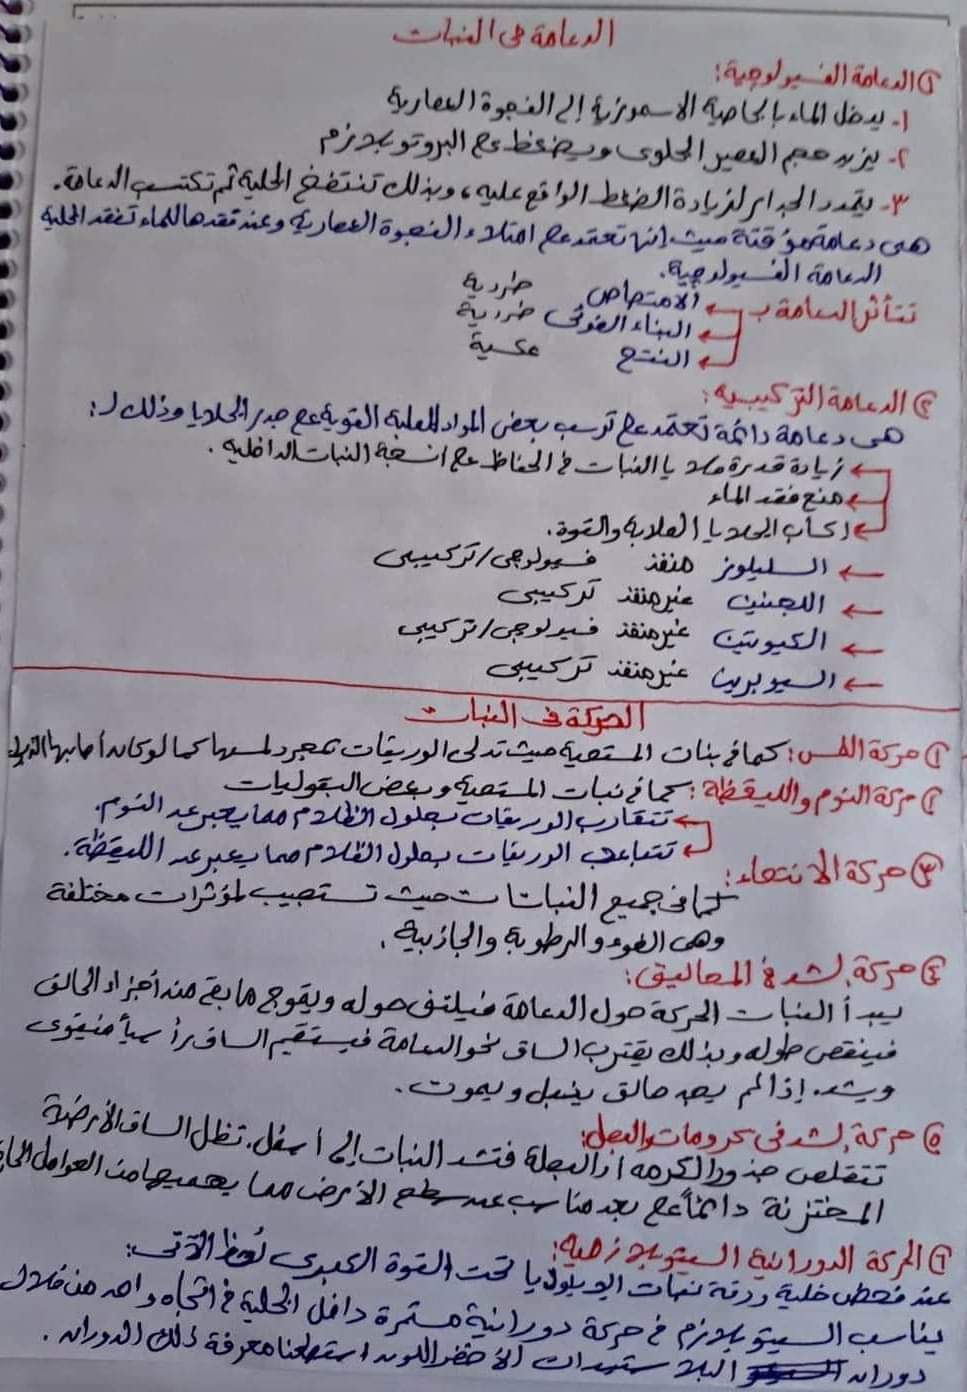 الدعامة في النبات
① الدعامة الفسيولوجية:
١- يدخل الماء بالخاصية الاسموزية إلى الفجوة العصارية
٢- يزيد حجم العصير الخلوى ويضغط على البروتوبلازم
٣- يتمدد الجدار لزيادة الضغط الواقع عليه، وبذلك تنتفخ الخلية ثم تكتسب الدعامة.
هى دعامة مؤقتة حيث انها تعتمد على امتلاء الفجوة العصارية وعند فقدها للماء تفقد الخلية
الدعامة الفسيولوجية.
تتأثر الدعامة بـ ← الامتصاص طردية
← البناء الضوئى طردية
← النتح عكسية
② الدعامة التركيبية:
هى دعامة دائمة تعتمد على ترسب بعض المواد الصلبة القوية على جدر الخلايا وذلك لـ:
← زيادة قدرة خلايا النبات في الحفاظ على انسجة النبات الداخلية.
← منع فقد الماء
← اكساب الخلايا الصلابة والقوة.
← السليلوز منفذ فسيولوجى/تركيبى
← اللجنين غير منفذ تركيبى
← الكيوتين غير منفذ فسيولوجى/تركيبى
← السيوبرين غير منفذ تركيبى
الحركة في النبات
① حركة اللمس: كما في نبات المستحية حيث تدلى الوريقات بمجرد لمسها كما لو كان أصابها الذبول
② حركة النوم واليقظة: كما في نبات المستحية وبعض البقوليات
← تتقارب الوريقات بحلول الظلام مما يعبر عن النوم.
← تتباعد الوريقات بحلول الظلام مما يعبر عن اليقظة.
③ حركة الانتحاء:
كما في جميع النباتات حيث تستجيب لمؤثرات مختلفة
وهى الضوء والرطوبة والجاذبية.
④ حركة الشد في المحاليق:
يبدأ النبات الحركة حول الدعامة فيلتف حوله ويتموج ما بقى من أجزاء الحالق
فينقص طوله وبذلك يقترب الساق نحو الدعامة فيستقيم الساق رأسياً فيقوى
ويشد. إذا لم يجد حالق يذبل ويموت.
⑤ حركة الشد في كرومات والبصل:
تتقلص جذور الكرمه أو البصلة فتشد النبات إلى أسفل. تظل الساق الأرضية
المختزنة دائماً على بعد مناسب عن سطح الأرض مما يحميها من العوامل
⑥ الحركة الدورانية السيتوبلازمية:
عند فحص خلية ورقة نبات الايلوديا تحت القوة الكبرى نُلاحظ الآتى:
ينساب السيتوبلازم في حركة دورانية مستمرة داخل الخلية في اتجاه واحد من خلال
دوران البلاستيدات الاخضر اللون استطعنا معرفة ذلك الدوران.